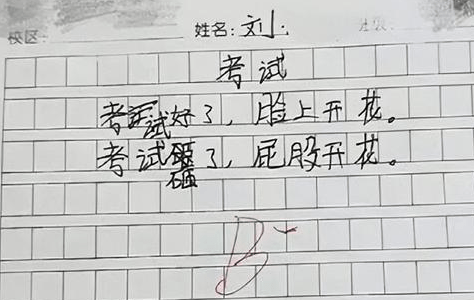 校区: 姓名: 刘
考试
考试好了，脸上开花。
考试砸了，屁股开花。
B-